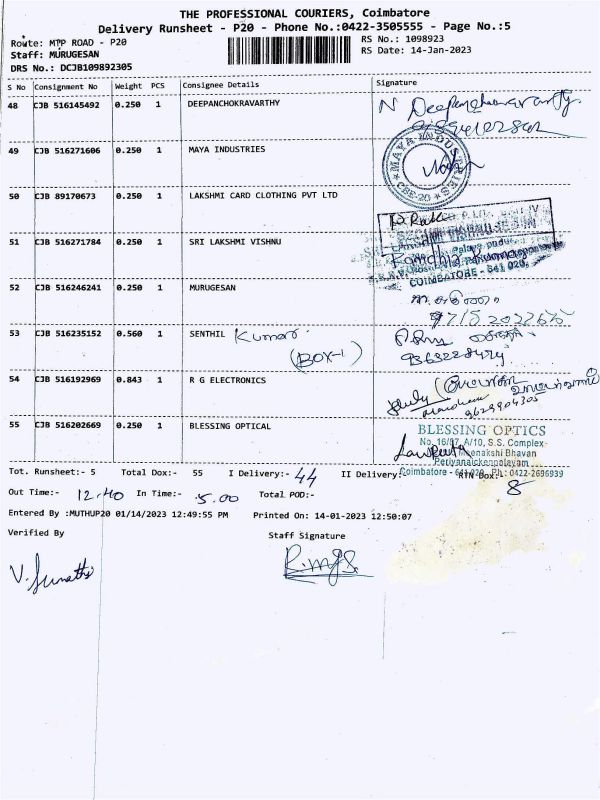 THE PROFESSIONAL COURIERS, Coimbatore
Delivery Runsheet - P20 - Phone No.:0422-3505555 - Page No.:5
Route: MTP ROAD - P20
RS No.: 1098923
Staff: MURUGESAN
RS Date: 14-Jan-2023
DRS No.: DCJB109892305
S No Consignment No Weight PCS Consignee Details Signature
48 CJB 516145492 0.250 1 DEEPANCHOKRAVARTHY N Deepanchakravarthy
49 CJB 516271606 0.250 1 MAYA INDUSTRIES MAYA INDUSTRIES CBE-20
50 CJB 89170673 0.250 1 LAKSHMI CARD CLOTHING PVT LTD
51 CJB 516271784 0.250 1 SRI LAKSHMI VISHNU
COIMBATORE - 641 020.
52 CJB 516246241 0.250 1 MURUGESAN
53 CJB 516235152 0.560 1 SENTHIL Kumar
(BOX-1)
54 CJB 516192969 0.843 1 R G ELECTRONICS
9629904305
55 CJB 516202669 0.250 1 BLESSING OPTICAL BLESSING OPTICS
No. 16/87, A/10, S.S. Complex
Meenakshi Bhavan
Periyanaickenpalayam
Coimbatore - 641 020. Ph: 0422-2696939
Tot. Runsheet:- 5 Total Dox:- 55 I Delivery:- 44 II Delivery:- RTN Dox:- 8
Out Time:- 12.40 In Time:- 5.00 Total POD:-
Entered By :MUTHUP20 01/14/2023 12:49:55 PM Printed On: 14-01-2023 12:50:07
Verified By Staff Signature